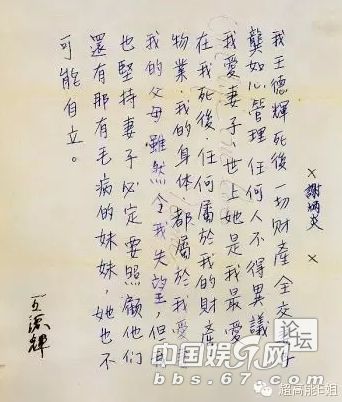 × 謝炳炎 ×
我王德輝死後一切財產全交
龔如心管理任何人不得異議
我愛妻子,世上她是我最愛
在我死後,任何屬於我的財產
物業.我的身體.都屬於我愛
我的父母雖然令我失望,但
也堅持妻子必定要照顧他們
還有那有毛病的妹妹,她也不
可能自立。
王德輝
论坛
中国娱乐网
bbs.67.com
超高能E姐